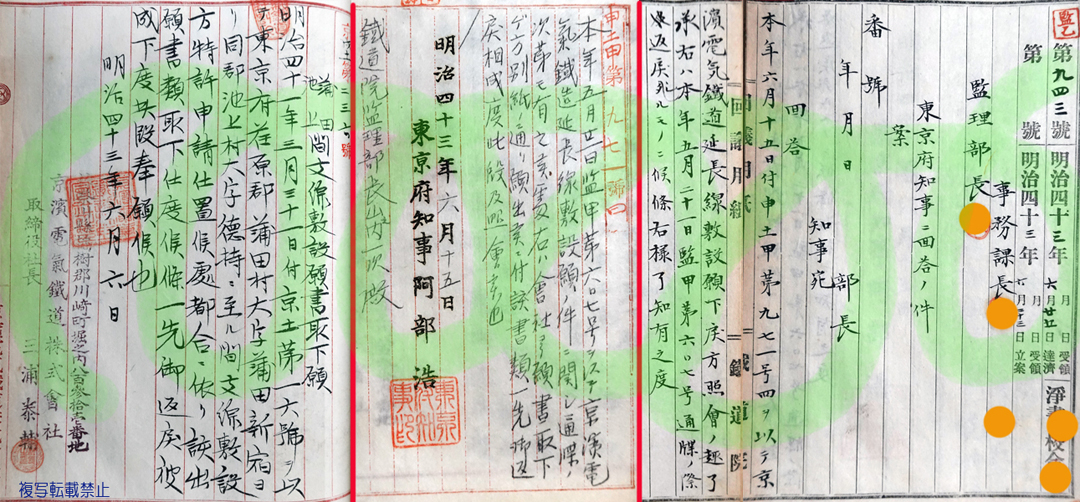 監乙
第九四三號 明治四十三年 六月廿五日 受領 達濟
第 號 明治四十三年 月 日 受領 立案
監理部長
事務課長
東京府知事ニ回答ノ件
案
番號
年月日
部長
知事宛
回答
本年六月十五日付申土甲第九七一号四ヲ以テ京
濱電気鐵道延長線敷設願下戻方照會ノ趣了
承右ハ本年五月二十一日監甲第六〇七号通牒ノ際
返戻
候條右樣了知有之度
回議用紙
鐵道院
申土甲第九七一號四
本年五月廿一日監甲第六〇七号ヲ以テ京濱電
氣鐵道延長線敷設願ノ件ニ関シ通牒ノ
次第モ有之
右ハ會社ヨリ願書取下
方別紙ノ通リ願出
ニ付該書類一先御返
戻相成度此段及照會候也
明治四十三年六月十五日
東京府知事阿部浩
鐵道院監理部長山之内一次殿
蒲田
池上間支線敷設願書取下願
明治四十一年三月三十一日付京土第一六號ヲ以
テ東京府荏原郡蒲田村大字蒲田新宿ヨ
リ同郡池上村大字德持ニ至ル間支線敷設
方特許申請仕置候處都合ニ依リ該出
願書類取下仕度候條一先御返戻被
成下度此段奉願候也
明治四十三年六月六日
樹郡川崎町堀之内八百參拾壱番地
京濱電氣鐵道株式會社
取締役社長 三浦泰輔
複写転載禁止